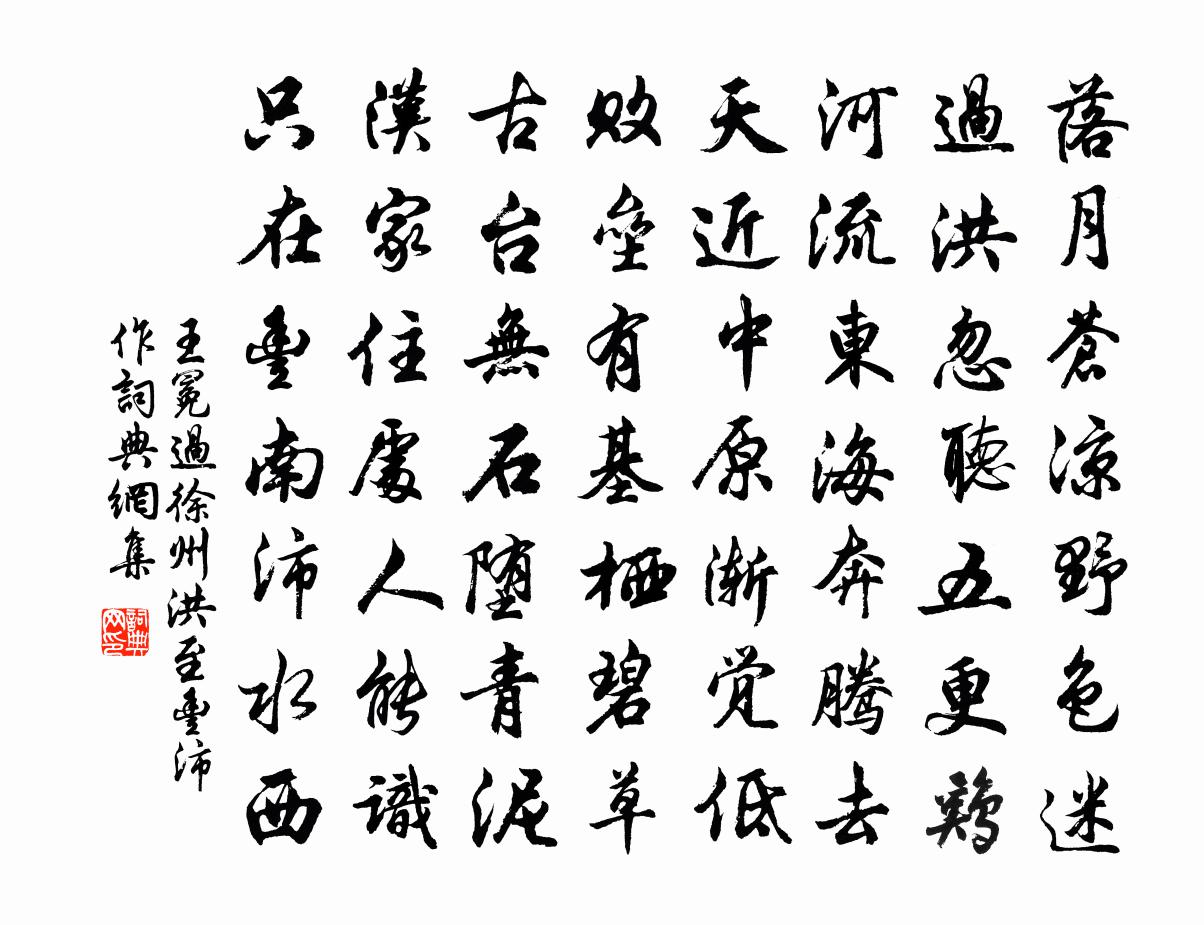 落月蒼涼野色迷
過洪忽聽五更鷄
河流東海奔騰去
天近中原漸覚低
敗壘有基栖碧草
古台無石堕青泥
漢家住處人能識
只在豐南沛水西
王冕過徐州洪至豐沛
作詞典網集
詞典網印